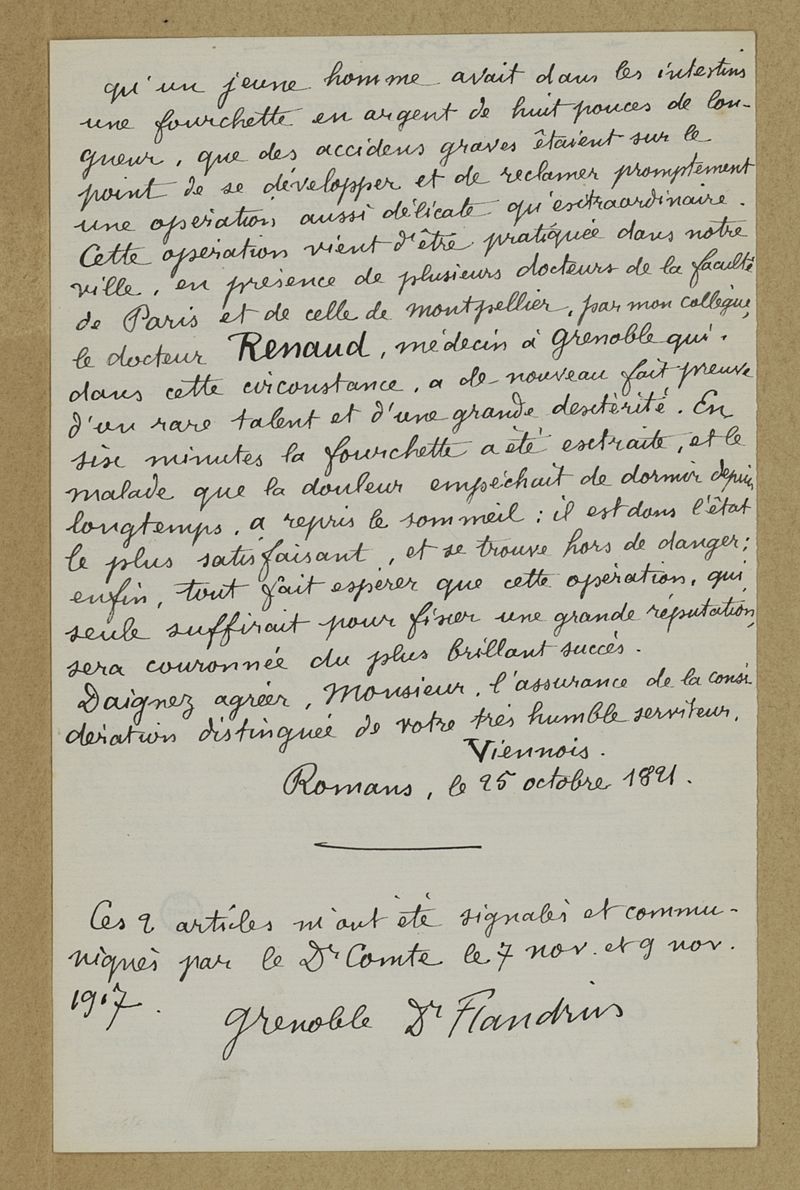 qu'un jeune homme avait dans les intestins
une fourchette en argent de huit pouces de lon-
gueur, que des accidens graves étaient sur le
point de se développer et de reclamer promptement
une opération aussi délicate qu'extraordinaire.
Cette opération vient d'être pratiquée dans notre
ville, en présence de plusieurs docteurs de la faculté
de Paris et de celle de Montpellier, par mon collègue,
le docteur Renaud, médecin à Grenoble qui,
dans cette circonstance, a de nouveau fait preuve
d'un rare talent et d'une grande dextérité. En
six minutes la fourchette a été extraite, et le
malade que la douleur empêchait de dormir depuis
longtemps, a repris le sommeil : il est dans l'état
le plus satisfaisant, et se trouve hors de danger;
enfin, tout fait espérer que cette opération, qui
seule suffirait pour fixer une grande réputation,
sera couronnée du plus brillant succès.
Daignez agréer, Monsieur, l'assurance de la consi-
dération distinguée de votre très humble serviteur.
Viennois.
Romans, le 25 octobre 1821.
Ces 2 articles m'ont été signalés et commu-
niqués par le Dr Comte le 7 nov. et 9 nov.
1917.
Grenoble Dr Flandrin